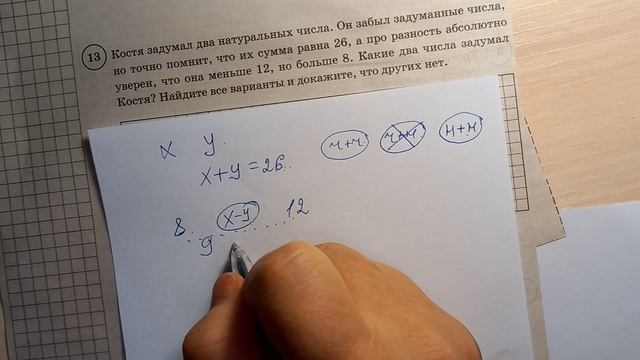 13 Костя задумал два натуральных числа. Он забыл задуманные числа,
но точно помнит, что их сумма равна 26, а про разность абсолютно
уверен, что она меньше 12, но больше 8. Какие два числа задумал
Костя? Найдите все варианты и докажите, что других нет.
x y.
ч+ч. ч+н н+н
x+y=26.
8. x-y 12
9